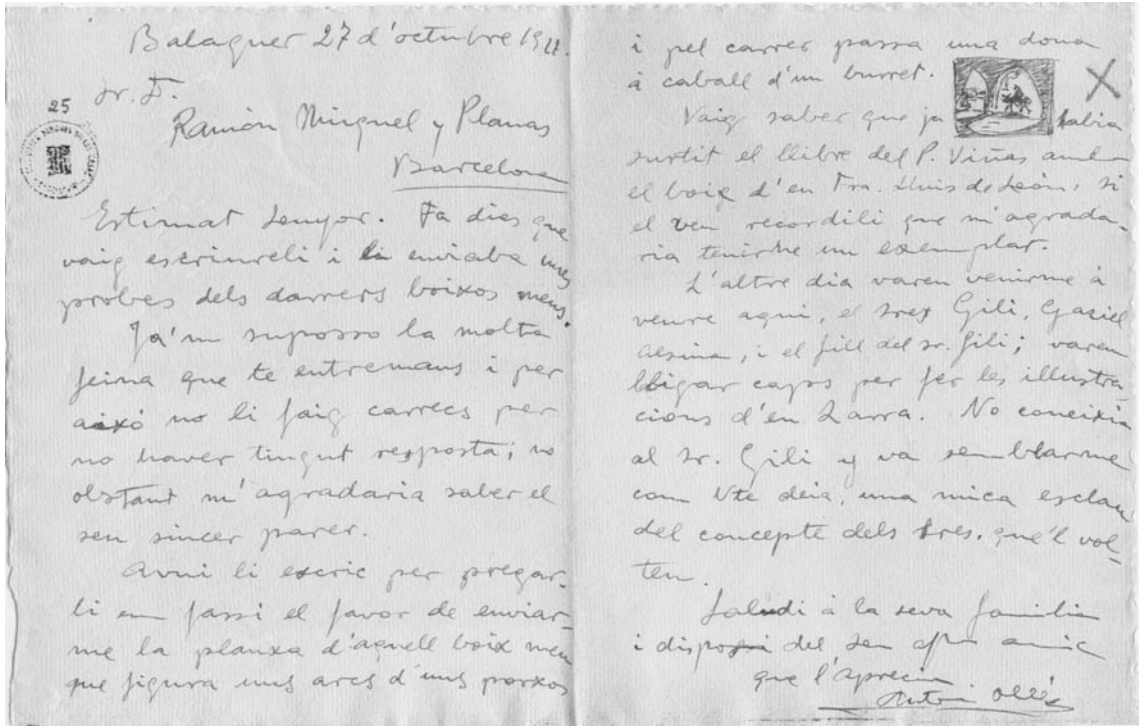 Balaguer 27 d'octubre 19
25
Sr. D.
Ramón Miquel y Planas
Barcelona
Estimat senyor. Fa dies que
vaig escriureli i li enviaba unes
probes dels darrers boixos meus.
Ja'm suposso la molta
feina que te entremans i per
aixó no li faig carrecs per
no haver tingut resposta; no
obstant m'agradaria saber el
seu sincer parer.
Avui li escric per pregar-
li em fassi el favor de enviar-
me la planxa d'aquell boix meu
que figura uns arcs d'uns porxos
i pel carrer passa una dona
á caball d'un burret.
Vaig saber que ja habia
surtit el llibre del P. Viñas amb
el boig d'en Fra. Lluis de León, si
el veu recordili que m'agrada-
ria tenirhe un exemplar.
L'altre dia varen venirme á
veure aquí, el Gili, Gaziel
Alsina, i el fill del sr. Gili; varen
lligar caps per fer les illustra
cions d'en Larra. No coneixia
al Sr. Gili y va semblarme
com Vte deia, una mica esclau
del concepte dels tres, que'l vol-
ten.
Saludi á la seva familia
i disposi del seu afm amic
que l'aprecia
Antoni Ollés